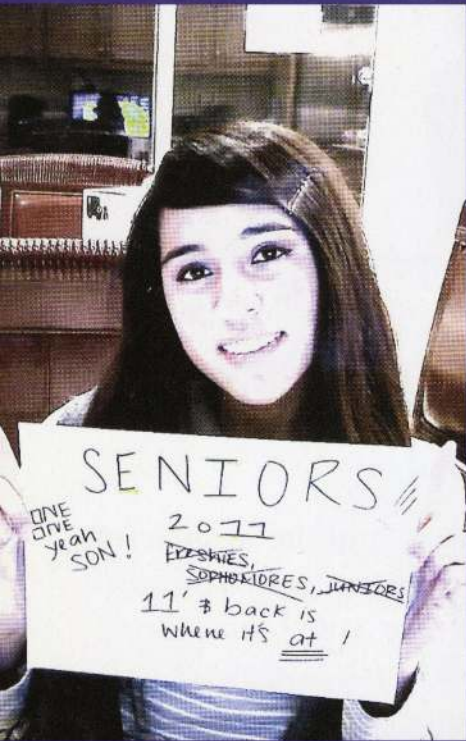 SENIORS
2011
ONE
ONE
yeah
SON!
Freshies,
SOPHOMORES, JUNIORS
11' $ back is
where it's at !